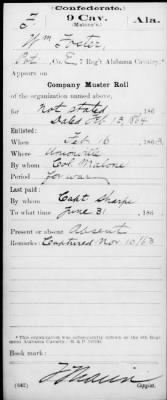 (Confederate.)
F 9 Cav. Ala.
(Malone's.)
Wm Foster,
Pvt, Co. 7 Reg't Alabama Cavalry.*
Appears on
Company Muster Roll
of the organization named above,
for Not Stated , 186
Dated Feb 13, 1864
Enlisted:
When Feb 16 , 1863
Where
By whom Col. Malone
Period for war
Last paid:
By whom Capt Sharpe
To what time June 31 , 186
Present or absent Absent
Remarks: Captured Nov 10/63
*This organization was subsequently known as the 9th Regiment Alabama Cavalry.
Book mark:
(642) Copyist.